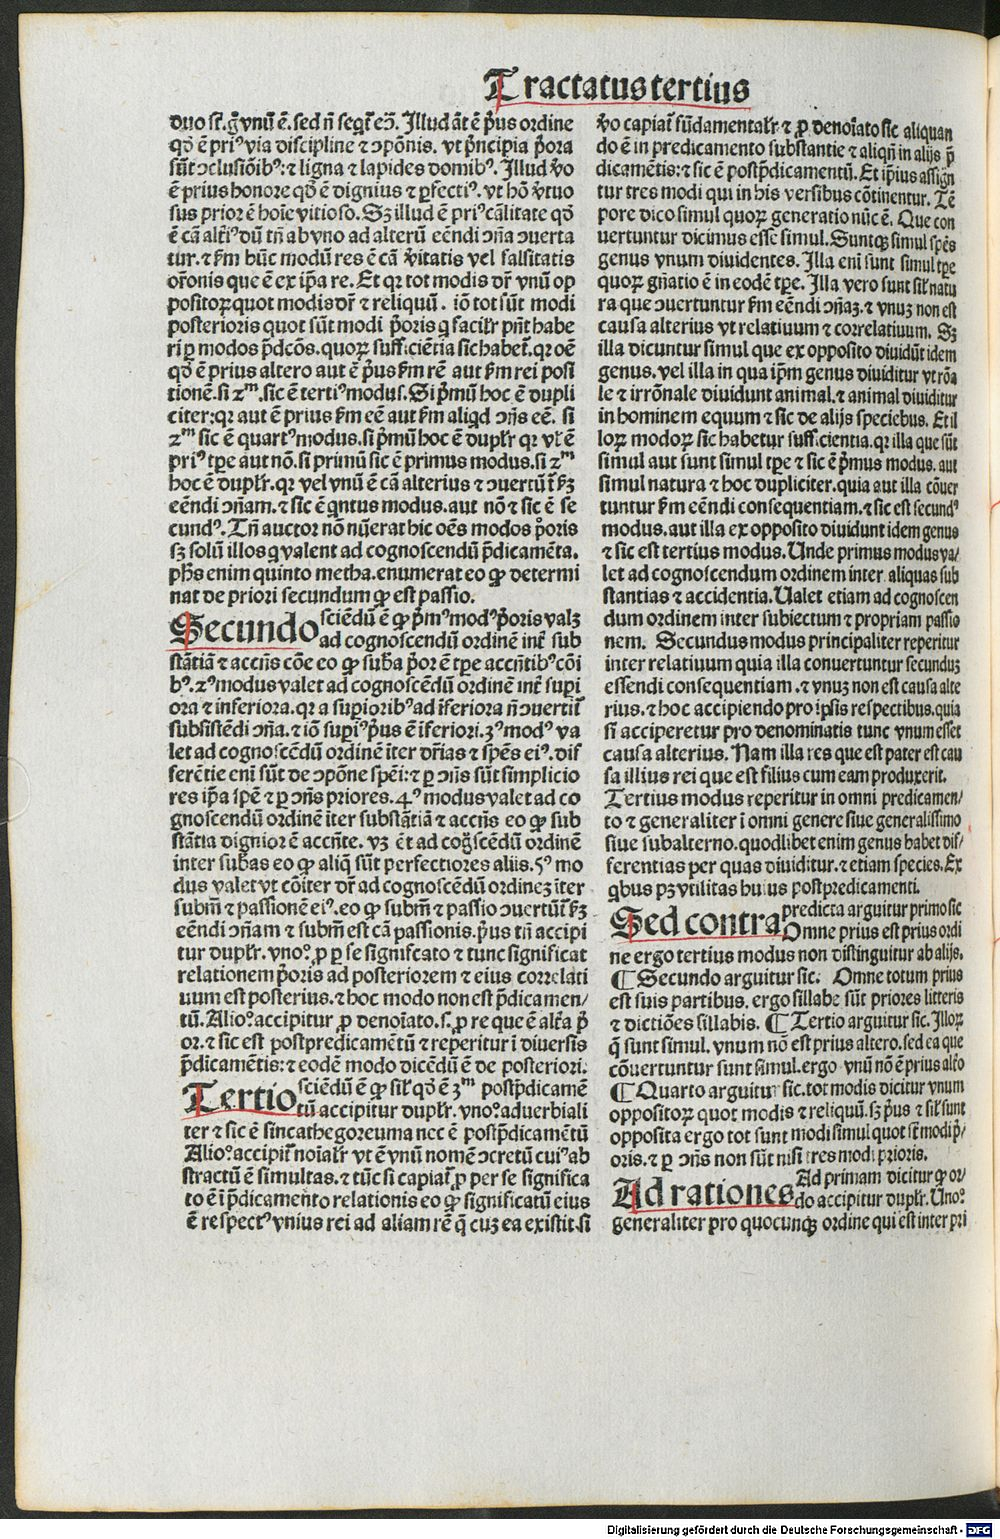 Tractatus tertius
duo st̃. g̊ vnū ē. sed nͥ seqͭ ecͦ. Illud āt ē pͥus ordine
qd̓ ē priꝰ via discipline ⁊ ꝯpōnis. vt pͥncipia pͥora
sūt ꝯclusiōibꝰ: ⁊ ligna ⁊ lapides domibꝰ. Illud ꝟo
ē prius honore qd̓ ē dignius ⁊ ꝑfectiꝰ. vt hō ꝟtuo
sus prior ē hoīe vitioso. Sꝫ illud ē priꝰ cālitate qd̓
ē cā altͥꝰ dū tn̄ ab vno ad alterū eēndi ꝯña ꝯuerta
tur. ⁊ ẜm hūc modū res ē cā ꝟitatis vel falsitatis
or̄onis que ē ex ip̄a re. Et qꝛ tot modis dr̄ vnū op
positoꝝ quot modis dr̄ ⁊ reliquū. iō tot sūt modi
posterioris quot sūt modi pͥoris q̄ facilͥr pn̄t habe
ri ꝑ modos p̄dcōs. quoꝝ sufficiētia sic habet̄. qꝛ oē
qd̓ ē prius altero aut ē pͥus ẜm rē aut ẜm rei posi
tionē. si 2ᵐ. sic ē tertiꝰ modus. Si pͥmū hoc ē dupli
citer: qꝛ aut ē prius ẜm eē aut ẜm aliqd ꝯn̄s eē. si
2ᵐ sic ē quartꝰ modus. si pͥmū hoc ē duplͥr qꝛ vͥl ē
priꝰ tꝑe aut nō. si primū sic ē primus modus. si 2ᵐ
hoc ē duplͥr. qꝛ vel vnū ē cā alterius ⁊ ꝯuertūt̄ ẜꝫ
eēndi ꝯñam. ⁊ sic ē qͥntus modus. aut nō ⁊ sic ē se
cundꝰ. Tn̄ auctor nō nūerat hic oēs modos pͥoris
sꝫ solū illos qͥ valent ad cognoscendū p̄dicamēta.
phs̄ enim quinto metha. enumerat eo ꝙ determi
nat de priori secundum ꝙ est passio.
Secundo sciēdū ē ꝙ pͥmꝰ modꝰ pͥoris valꝫ
ad cognoscendū ordinē int̄ sub
stātiā ⁊ accn̄s cōe eo ꝙ suba̓ pͥor ē tꝑe accn̄tibꝰ cōi
bꝰ. 2ꝰ modus valet ad cognoscēdū ordinē int̄ supͥi
ora ⁊ inferiora. qꝛ a supͥioribꝰ ad īferiora nͥ ꝯuertit̄
subsistēdi ꝯña. ⁊ iō supͥiꝰ pͥus ē īferiori. 3ꝰ modꝰ va
let ad cognoscēdū ordinē īter dr̄ias ⁊ spēs eiꝰ. dif
ferētie eni sūt de ꝯpōne spēi: ⁊ ꝑ ꝯn̄s sūt simplicio
res ip̄a spē ⁊ ꝑ ꝯn̄s priores. 4ꝰ modus valet ad co
gnoscendū ordinē īter substātiā ⁊ accn̄s eo ꝙ sub
stātia dignior ē accn̄te. vꝫ ēt ad cog̊scēdū ordinē
inter subas̓ eo ꝙ aliq̄ sūt perfectiores aliis. 5ꝰ mo
dus valet vt cōiter dr̄ ad cognoscēdū ordineꝫ īter
subm̓ ⁊ passionē eiꝰ. eo ꝙ subm̓ ⁊ passio ꝯuertūt̄ ẜꝫ
eēndi ꝯñam ⁊ subm̓ est cā passionis. pͥus tn̄ accipi
tur duplͥr. vnoº. ꝓ ꝑ se significato ⁊ tunc significat
relationem pͥoris ad posteriorem ⁊ eius correlati
uum est posterius. ⁊ hoc modo non est p̄dicamen⸗
tū. Alioº. accipitur ꝓ denoīato. s. ꝓ re que ē altͥa pͥ
or. ⁊ sic est postpredicamētū ⁊ reperitur ī diuersis
p̄dicamētis: ⁊ eodē modo dicēdū ē de posteriori.
Tertio sciēdū ē ꝙ silͥ qd̓ ē 3ᵐ postp̄dicamē
tū accipitur duplͥr. vnoº. aduerbiali
ter ⁊ sic ē sincathegoreuma nec ē postp̄dicamētū
Alioº. accipit̄ noīalͥr vt ē vnū nomē ꝯcretū cuiꝰ ab
stractū ē simultas. ⁊ tūc si capiat̄ ꝓ per se significa
to ē ī p̄dicamento relationis eo ꝙ significatū eius
ē respectꝰ vnius rei ad aliam rē q̄ cuꝫ ea existit. si
ꝟo capiat̄ fūdamentalͥr ⁊ ꝓ denoīato sic aliquan
do ē in predicamento substantie ⁊ aliqn̄ in alijs p̄
dicamētis: ⁊ sic ē postp̄dicamentū. Et ip̄ius assign̄
tur tres modi qui in his versibus cōtinentur. Tē
pore dico simul quoꝝ generatio nūc ē. Que con
uertuntur dicimus esse simul. Suntqꝫ simul spēs
genus vnum diuidentes. Illa eni sunt simul tꝑe
quoꝝ gn̄atio ē in eodē tꝑe. Illa vero sunt silͥ natu
ra que ꝯuertuntur ẜm eēndi ꝯñaꝫ. ⁊ vnuꝫ non est
causa alterius vt relatiuum ⁊ correlatiuum. Sꝫ
illa dicuntur simul que ex opposito diuidūt idem
genus. vel illa in qua ip̄m genus diuiditur vt rōa
le ⁊ irrōnale diuidunt animal. ⁊ animal diuiditur
in hominem equum ⁊ sic de alijs speciebus. Et il
loꝝ modoꝝ sic habetur sufficientia. qꝛ illa que sūt
simul aut sunt simul tꝑe ⁊ sic ē pͥmus modus. aut
simul natura ⁊ hoc dupliciter. quia aut illa cōuer
tuntur ẜm eēndi consequentiam. ⁊ sic est secundꝰ
modus. aut illa ex opposito diuidunt idem genus
⁊ sic est tertius modus. Unde primus modus va⸗
let ad cognoscendum ordinem inter aliquas sub
stantias ⁊ accidentia. Ualet etiam ad cognoscen
dum ordinem inter subiectum ⁊ propriam passio
nem. Secundus modus principaliter reperitur
inter relatiuum quia illa conuertuntur secunduꝫ
essendi consequentiam. ⁊ vnuꝫ non est causa alte
rius. ⁊ hoc accipiendo pro ipsis respectibus. quia
si acciperetur pro denominatis tunc vnum esset
causa alterius. Nam illa res que est pater est cau
sa illius rei que est filius cum eam produxerit.
Tertius modus reperitur in omni predicamen⸗
to ⁊ generaliter ī omni genere siue generalissimo
siue subalterno. quodlibet enim genus habet dif⸗
ferentias per quas diuiditur. ⁊ etiam species. Ex
qͥbus pꝫ vtilitas huius postpredicamenti.
Sed contra predicta arguitur primo sic
Omne prius est prius ordi
ne ergo tertius modus non distinguitur ab alijs.
¶ Secundo arguitur sic. Omne totum prius
est suis partibus. ergo sillabe sūt priores litteris
⁊ dictiōes sillabis. ¶ Tertio arguitur sic. Illoꝝ
q̄ sunt simul. vnum nō est prius altero. sed ea que
cōuertuntur sunt simul. ergo vnū nō ē prius altͦo
¶ Quarto arguitur sic. tot modis dicitur vnum
oppositoꝝ quot modis ⁊ reliquū. sꝫ pͥus ⁊ silͥ sunt
opposita ergo tot sunt modi simul quot st̄ modi pͥ⸗
oris. ⁊ ꝑ ꝯn̄s non sūt nisi tres modi prioris.
Ad rationes Ad primam dicitur ꝙ or⸗
do accipitur duplͥr. Unoº.
generaliter pro quocunqꝫ ordine qui est inter pri
Digitalisierung gefördert durch die Deutsche Forschungsgemeinschaft - DFG